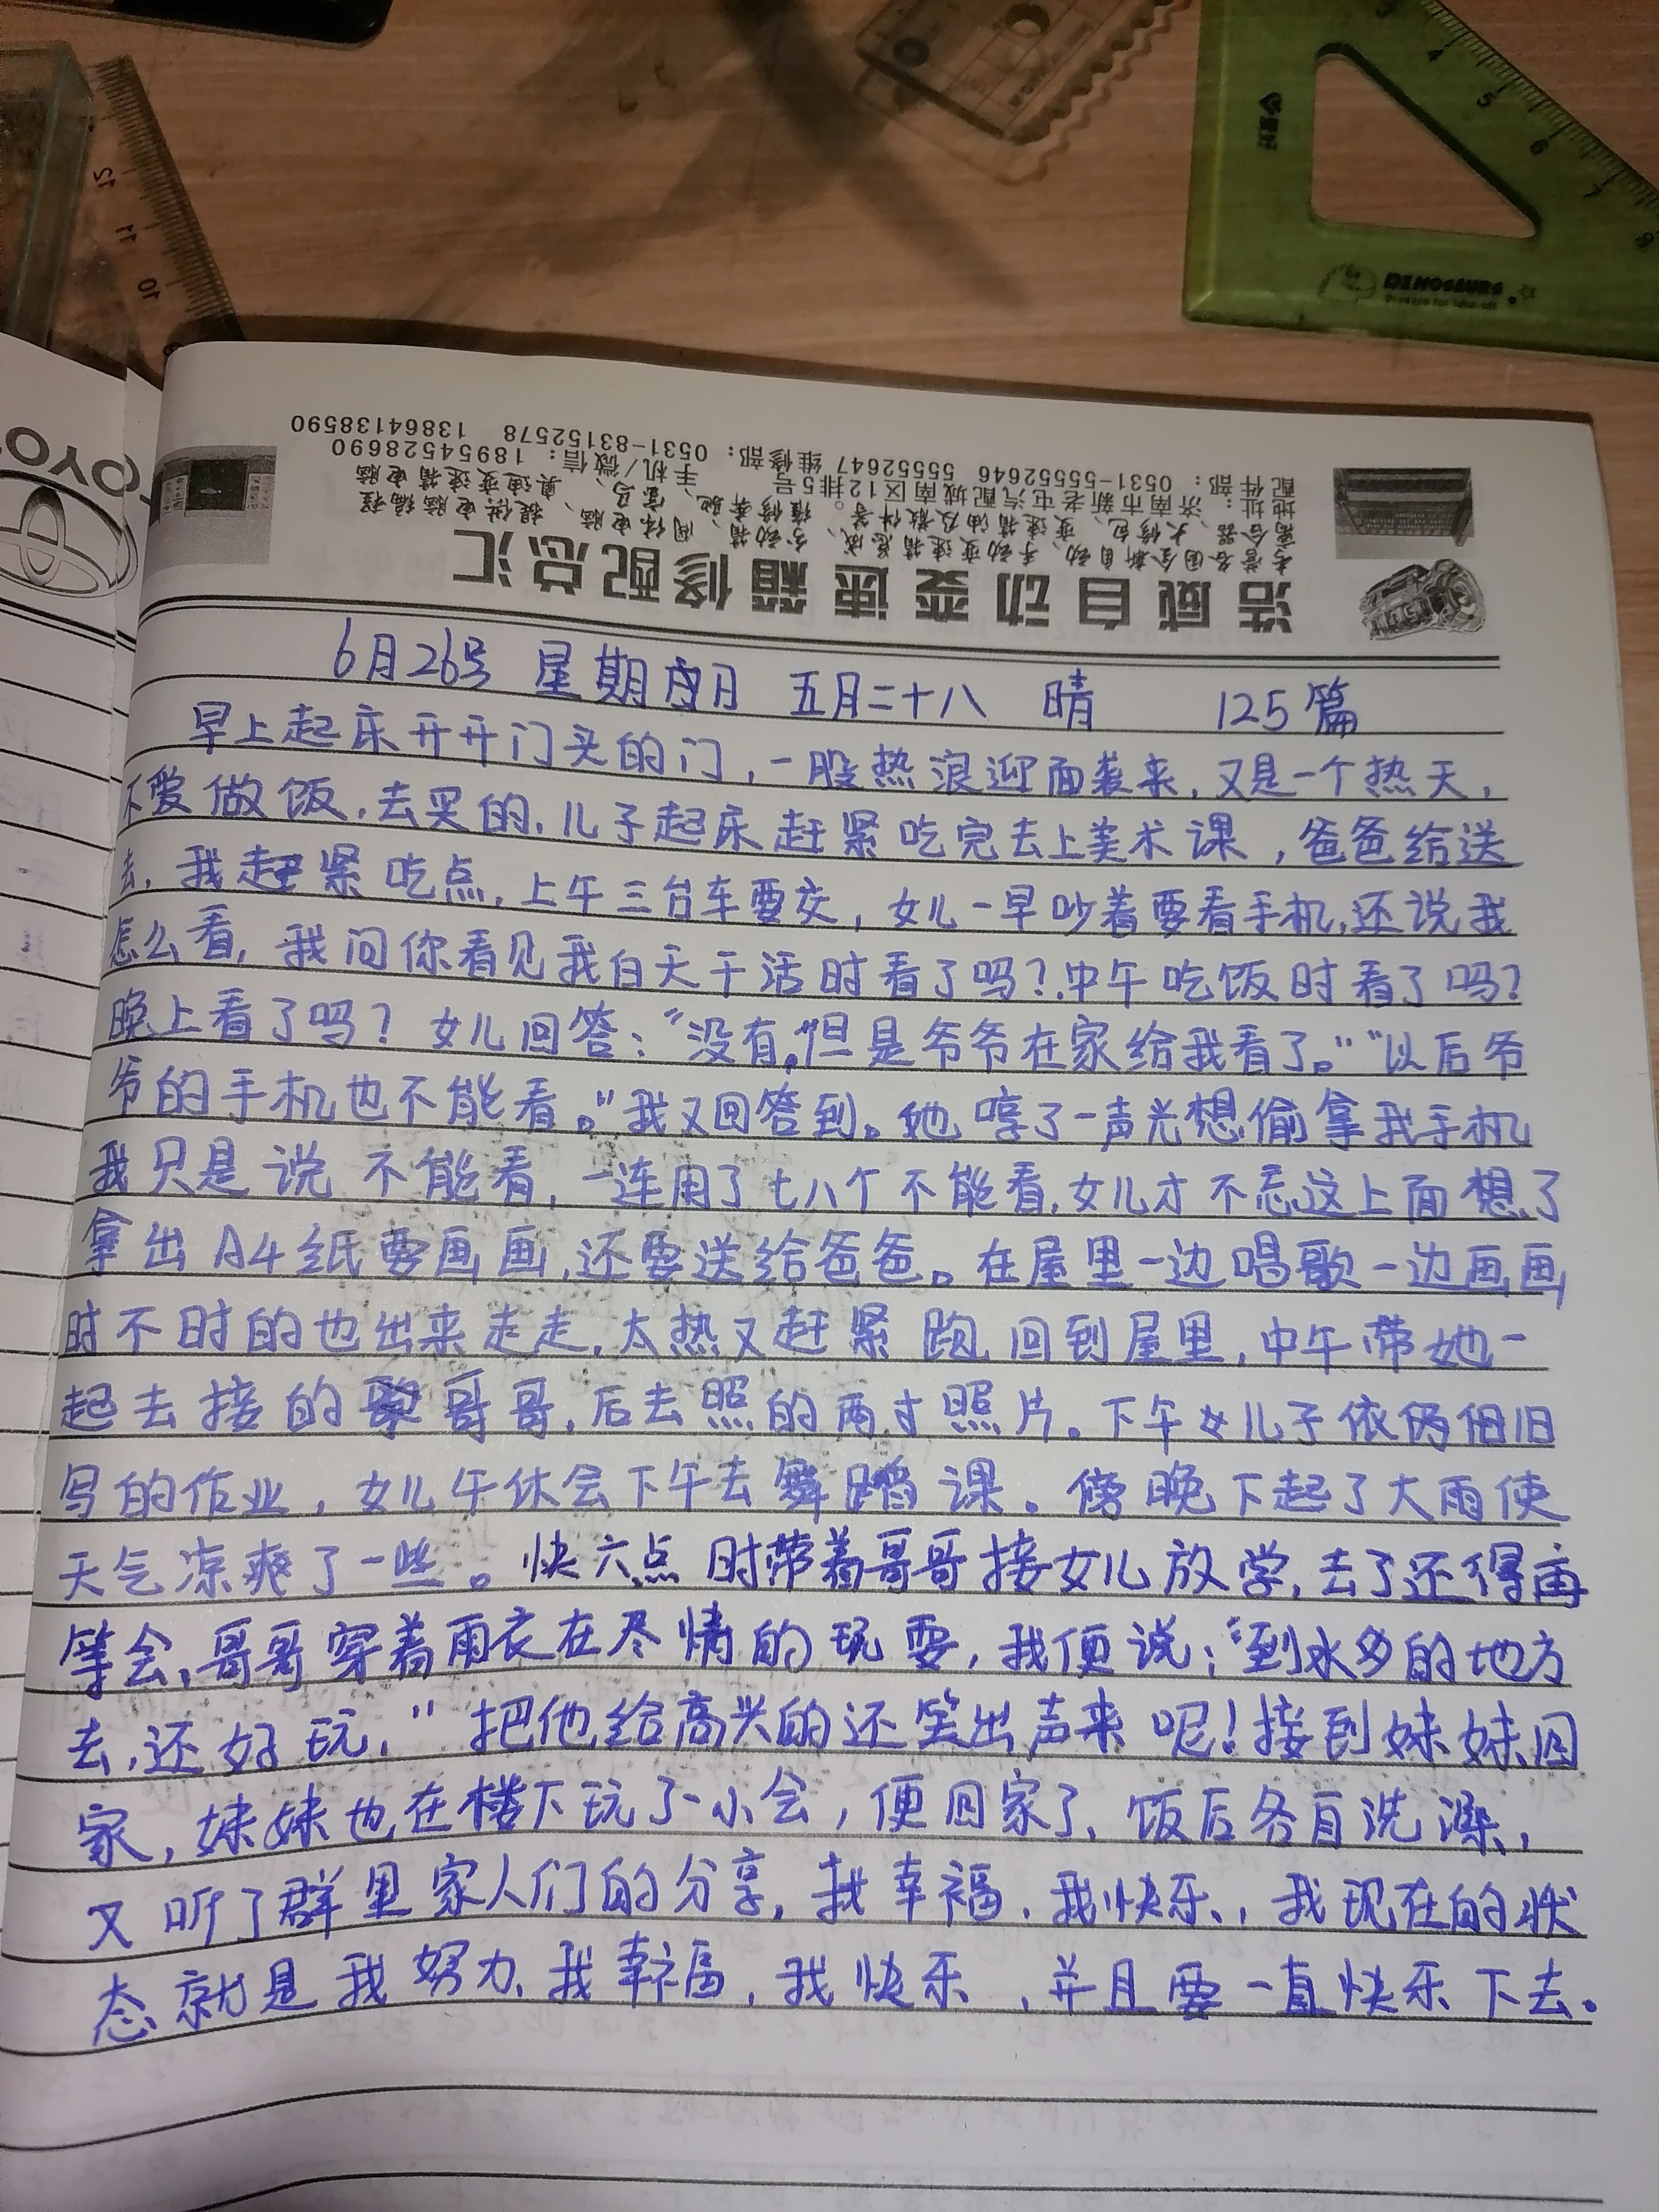 浩威自动变速箱修配总汇
地址：济南市新老屯汽配城南区12排5号
配件部：0531-55552646 55552647 维修部：0531-83152578 13864138590
手机/微信：18954528690
6月26号 星期日 五月二十八 晴 125篇
早上起床开开门头的门，一股热浪迎面袭来，又是一个热天，
不爱做饭，去买的，儿子起床赶紧吃完去上美术课，爸爸给送
去，我赶紧吃点，上午三台车要交，女儿一早吵着要看手机，还说我
怎么看，我问你看见我白天干活时看了吗？中午吃饭时看了吗？
晚上看了吗？女儿回答：“没有，但是爷爷在家给我看了。”“以后爷
爷的手机也不能看。”我又回答到。她哼了一声光想偷拿我手机
我只是说不能看，一连用了七八个不能看，女儿才不忘这上面想了
拿出A4纸要画画，还要送给爸爸。在屋里一边唱歌一边画画
时不时的也出来走走，太热又赶紧跑回到屋里，中午带她一
起去接的哥哥，后去照的两寸照片。下午女儿子依俩旧
写的作业，女儿午休会下午去舞蹈课。傍晚下起了大雨使
天气凉爽了一些。快六点时带着哥哥接女儿放学，去了还得再
等会，哥哥穿着雨衣在尽情的玩耍，我便说：“到水多的地方
去，还好玩，”把他给高兴的还笑出声来呢！接到妹妹回
家，妹妹也在楼下玩了一小会，便回家了，饭后各自洗澡，
又听了群里家人们的分享，我幸福，我快乐，我现在的状
态就是我努力，我幸福，我快乐，并且要一直快乐下去。
DINOSAURS